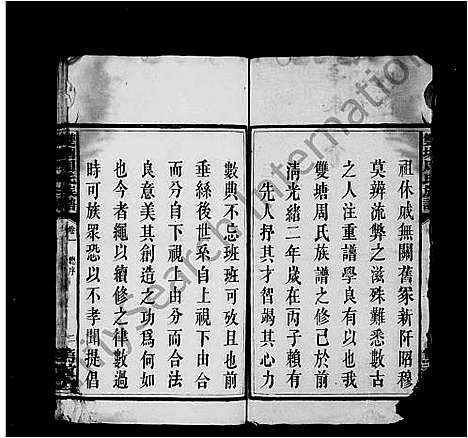 祖休戚無關舊家新阡昭穆
莫辨流弊之滋殊難悉數古
之人注重譜學良有以也我
雙塘周氏族譜之修已於前
清光緒二年歲在丙子賴有
先人抒其才智竭其心力
數典不忘班班可攷且也前
垂綈後世系自上視下由分
而分自下視上由分而合法
良意美其創造之功爲何如
也今者繩以續修之律數過
時可族眾恐以不孝聞提倡
卷一 總序
mysearch International